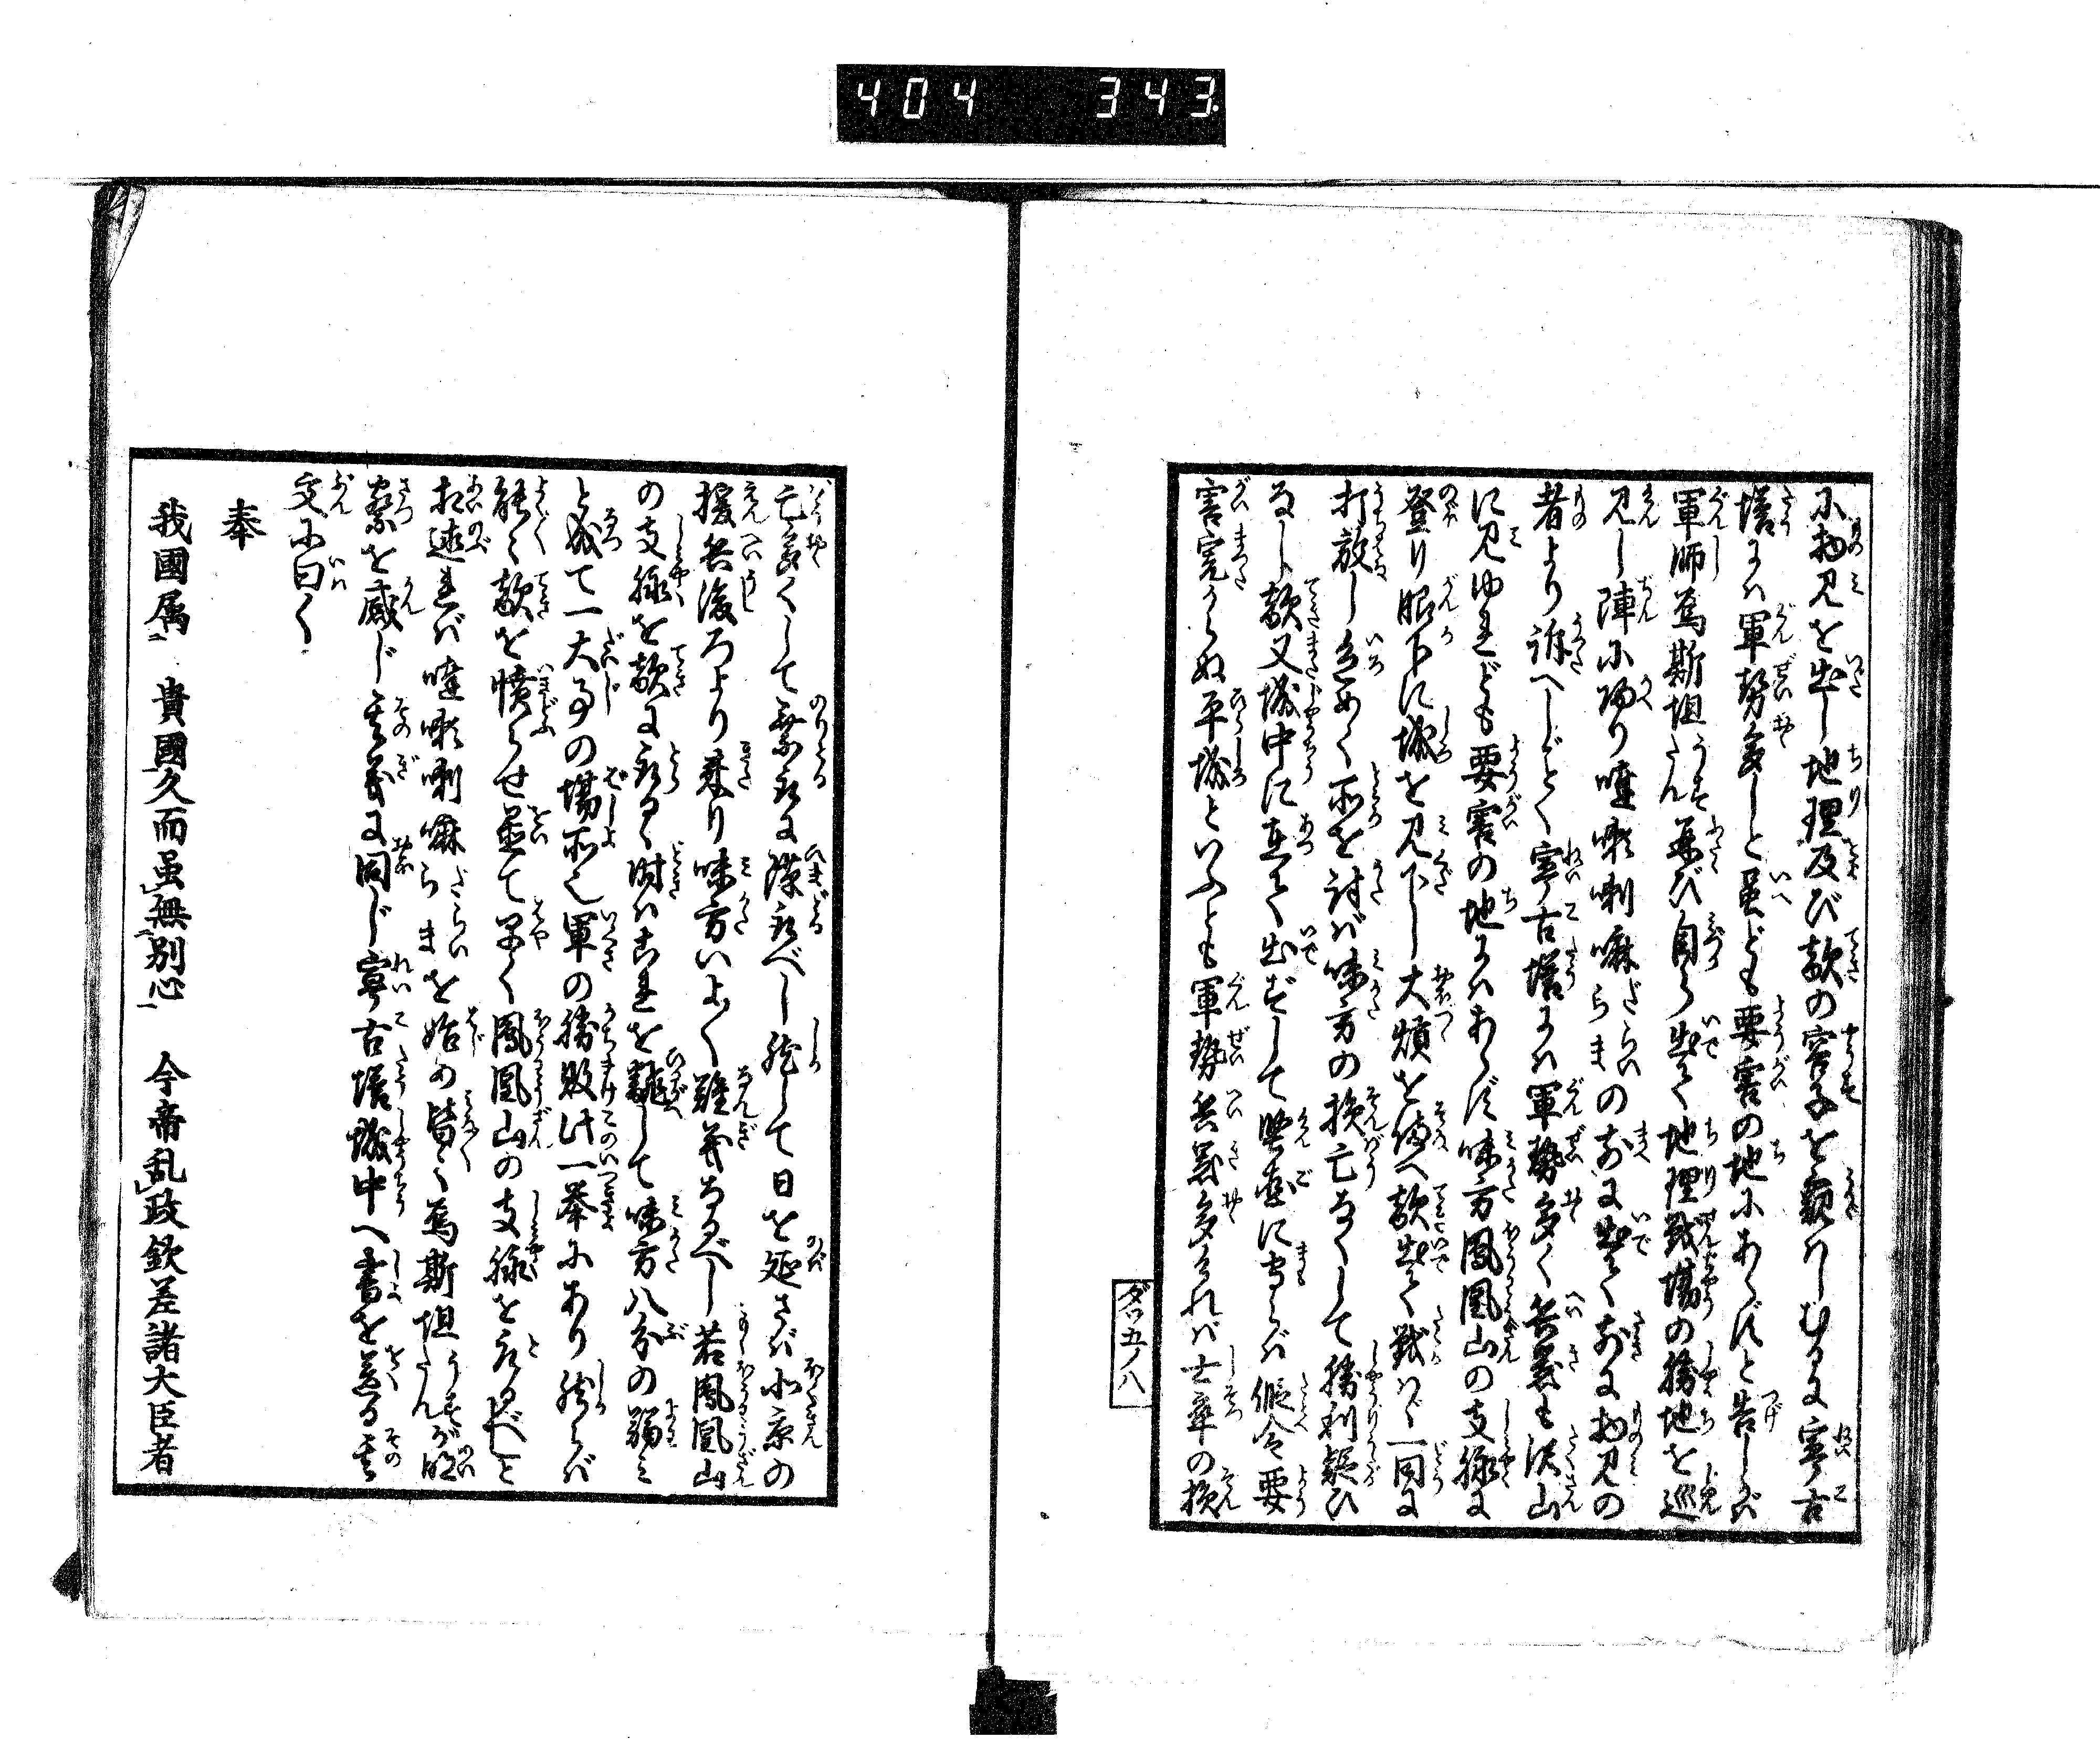 404 343
に物見を出し地理及び敵の容子を窺はしむるに寧古
塔には軍勢多しと虽ども要害の地にあらずと告しかば
軍師焉斯坦うすたん再び自ら出て地理戦場の勝地を巡
見し陣に帰り噠嚟喇嘛だらいらまの前に出て前に物見の
者より訴へしごとく寧古塔には軍勢多く兵器も沢山
に見ゆれども要害の地にはあらず味方鳳凰山の支緑に
登り眼下に城を見下し大熕を備へ敵出て戦はゞ一同に
打放し色めく所を討ば味方の損亡なくして勝利疑ひ
なし敵又城中に在て出ずして堅固に守らば縦令要
害寛からぬ平城といふとも軍勢兵器多ければ士卒の損
ダツ五ノ八
亡多くして乗取に隙取べし然して日を延さば北京の
援兵後ろより来り味方いよ〱難義なるべし若鳳凰山
の支緑を敵に取るゝ時はこれを譬して味方八分の弱み
と成て一大事の場所也軍の勝敗此一挙にあり然らば
能く敵を憤らせ置て早く鳳凰山の支緑を取るべしと
相述れば噠嚟喇嘛らまだらいを始め皆〻焉斯坦うすたんが明
察を感じ其義に同じ寧古塔城中へ書を送る其
文に曰く
奉
我國属貴國久而虽無別心今帝乱政欽差諸大臣者